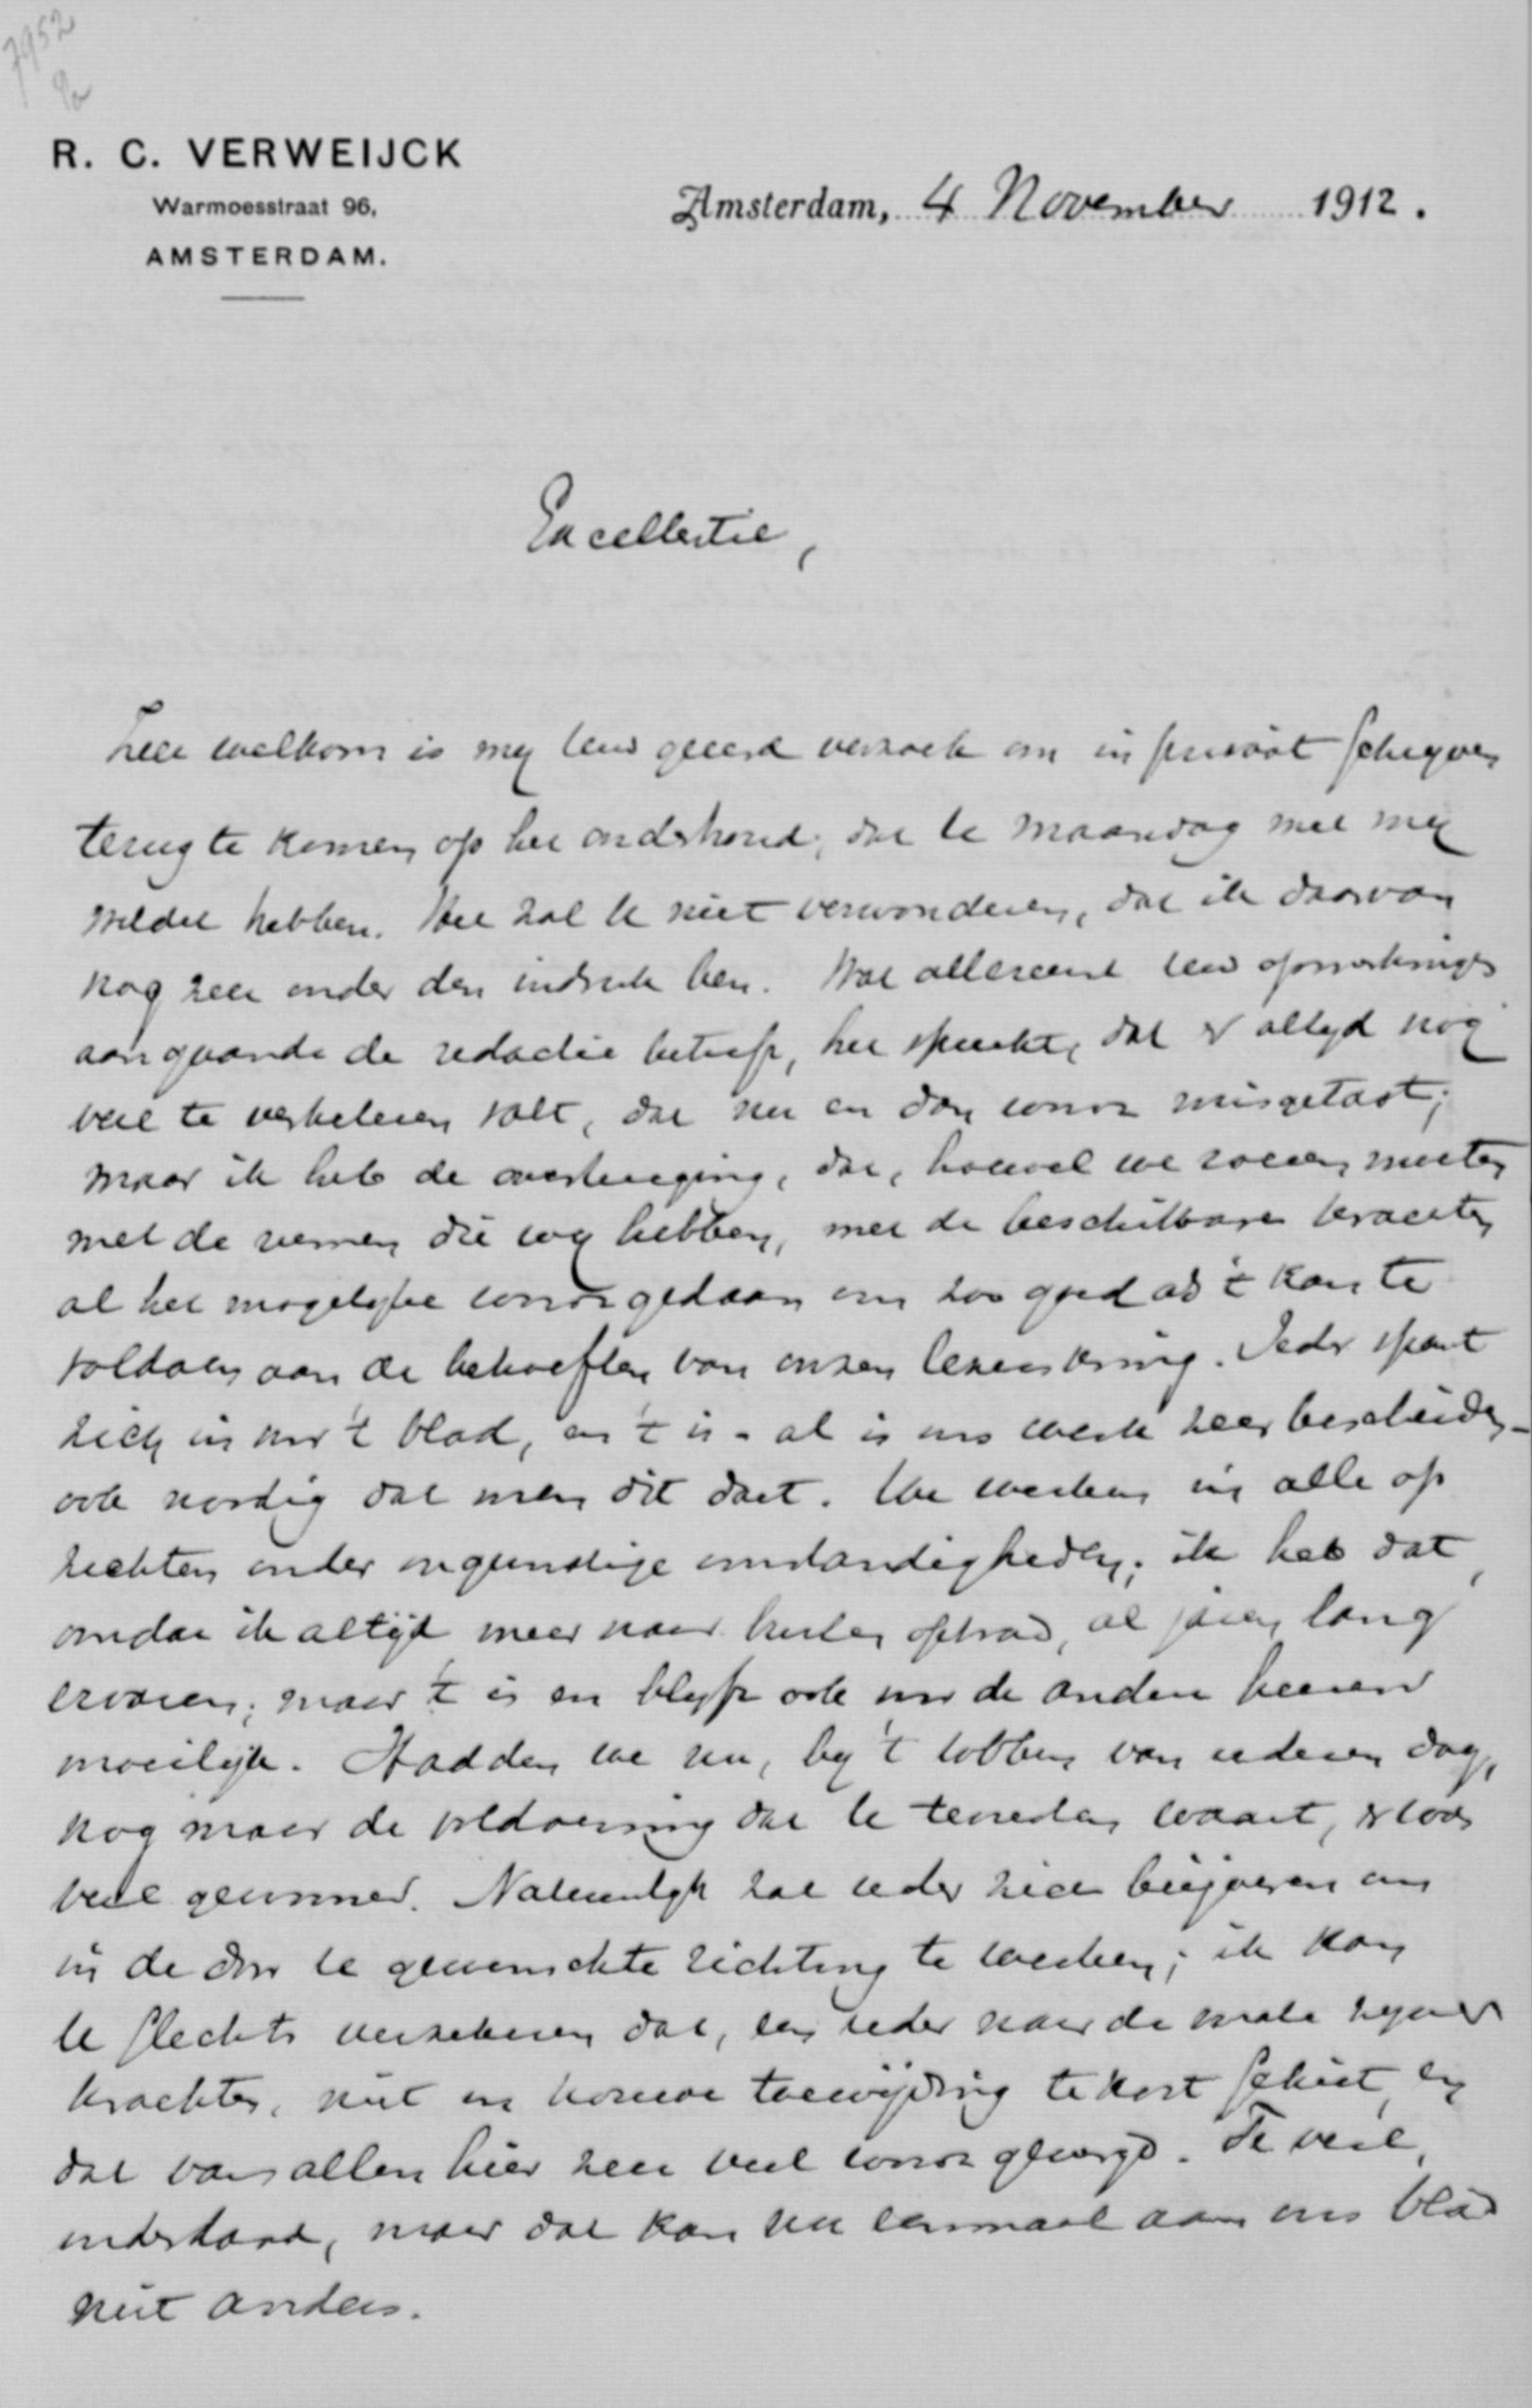 7952
R. C. VERWEIJCK
Warmoesstraat 96,
AMSTERDAM.
Amsterdam, 4 November 1912.
Excellentie,
Zeer welkom is mij Uw geeerd verzoek om in privaat schrijven
terug te komen op het onderhoud, dat U Maandag met mij
wildet hebben. Het zal U niet verwonderen, dat ik daarvan
nog zeer onder den indruk ben. Wat allereerst Uw opmerkingen
aangaande de redactie betreft, het spreekt, dat er altijd nog
veel te verbeteren valt, dat nu en dan wordt misgetast;
maar ik heb de overtuiging, dat, hoewel we roeien moeten
met de riemen die wij hebben, met de beschikbare krachten
al het mogelijke wordt gedaan om zoo goed als 't kan te
voldoen aan de behoeften van onzen lezerskring. Ieder spant
zich in voor 't blad, en 't is - al is ons werk zeer bescheiden -
ook noodig dat men dit doet. We werken in alle op
zichten onder ongunstige omstandigheden; ik heb dat,
omdat ik altijd meer naar buiten optrad, al jaren lang
ervaren; maar 't is en blijft ook voor de andere heeren
moeilijk. Hadden we nu, bij 't tobben van iederen dag,
nog maar de voldoening dat U tevreden waart, er was
veel gewonnen. Natuurlijk zal ieder zich beijveren om
in de door U gewenschte richting te werken; ik kan
U slechts verzekeren dat, een ieder naar de mate zijner
krachten, niet in trouwe toewijding te kort schiet, en
dat van allen hier zeer veel wordt gevergd. Te veel,
inderdaad, maar dat kan nu eenmaal aan ons blad
niet anders.